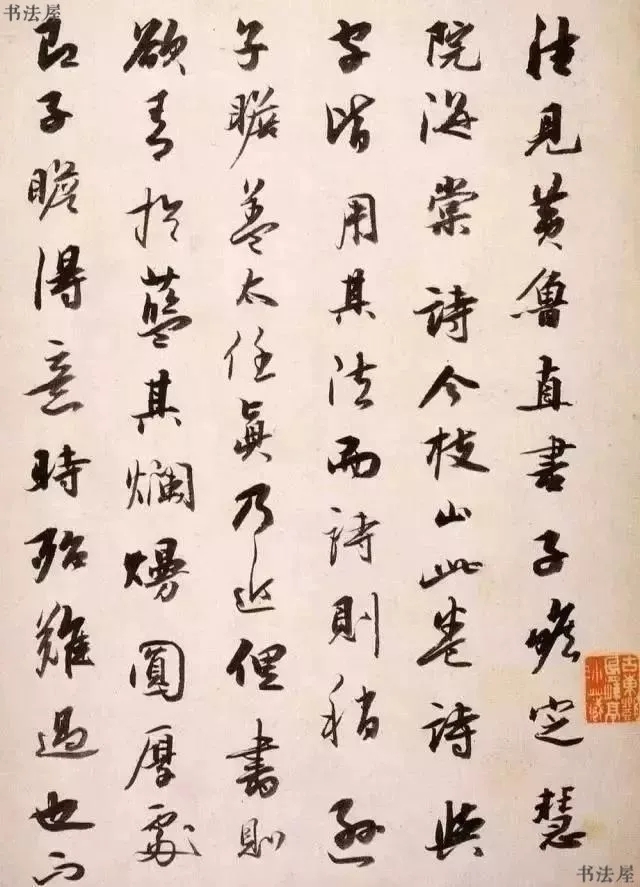 往見黃魯直書子瞻定慧
院海棠詩今枝山此卷詩與
字皆用其法而詩則稍遜
子瞻蓋太任眞乃近俚書則
欲青於藍其爛熳圓厚處
即子瞻得意時殆難過也而
书法屋
书法屋